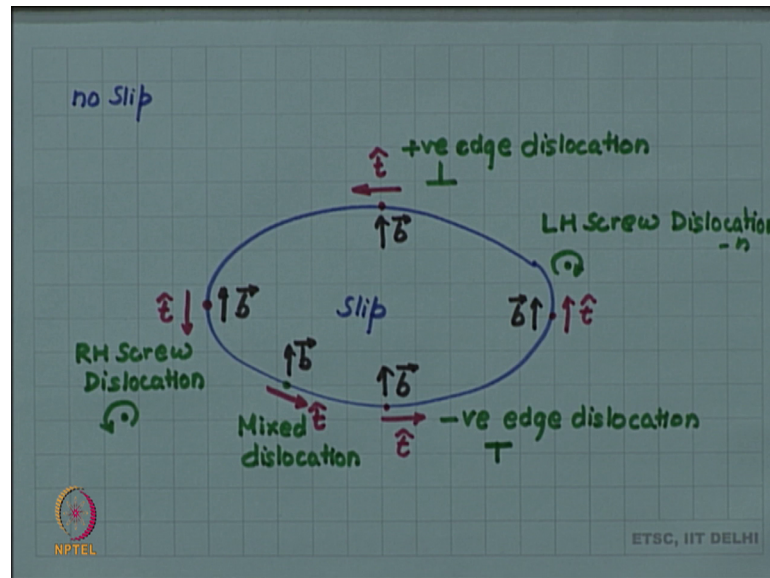 no slip
t̂ +ve edge dislocation
⊥
↑b⃗
LH Screw Dislocation
-n
t̂ ↓ ↑b⃗
slip
b⃗↑ ↑t̂
RH Screw
Dislocation
↑b⃗
t̂
Mixed
dislocation
↑b⃗
t̂
-ve edge dislocation
⊤
NPTEL
ETSC, IIT DELHI